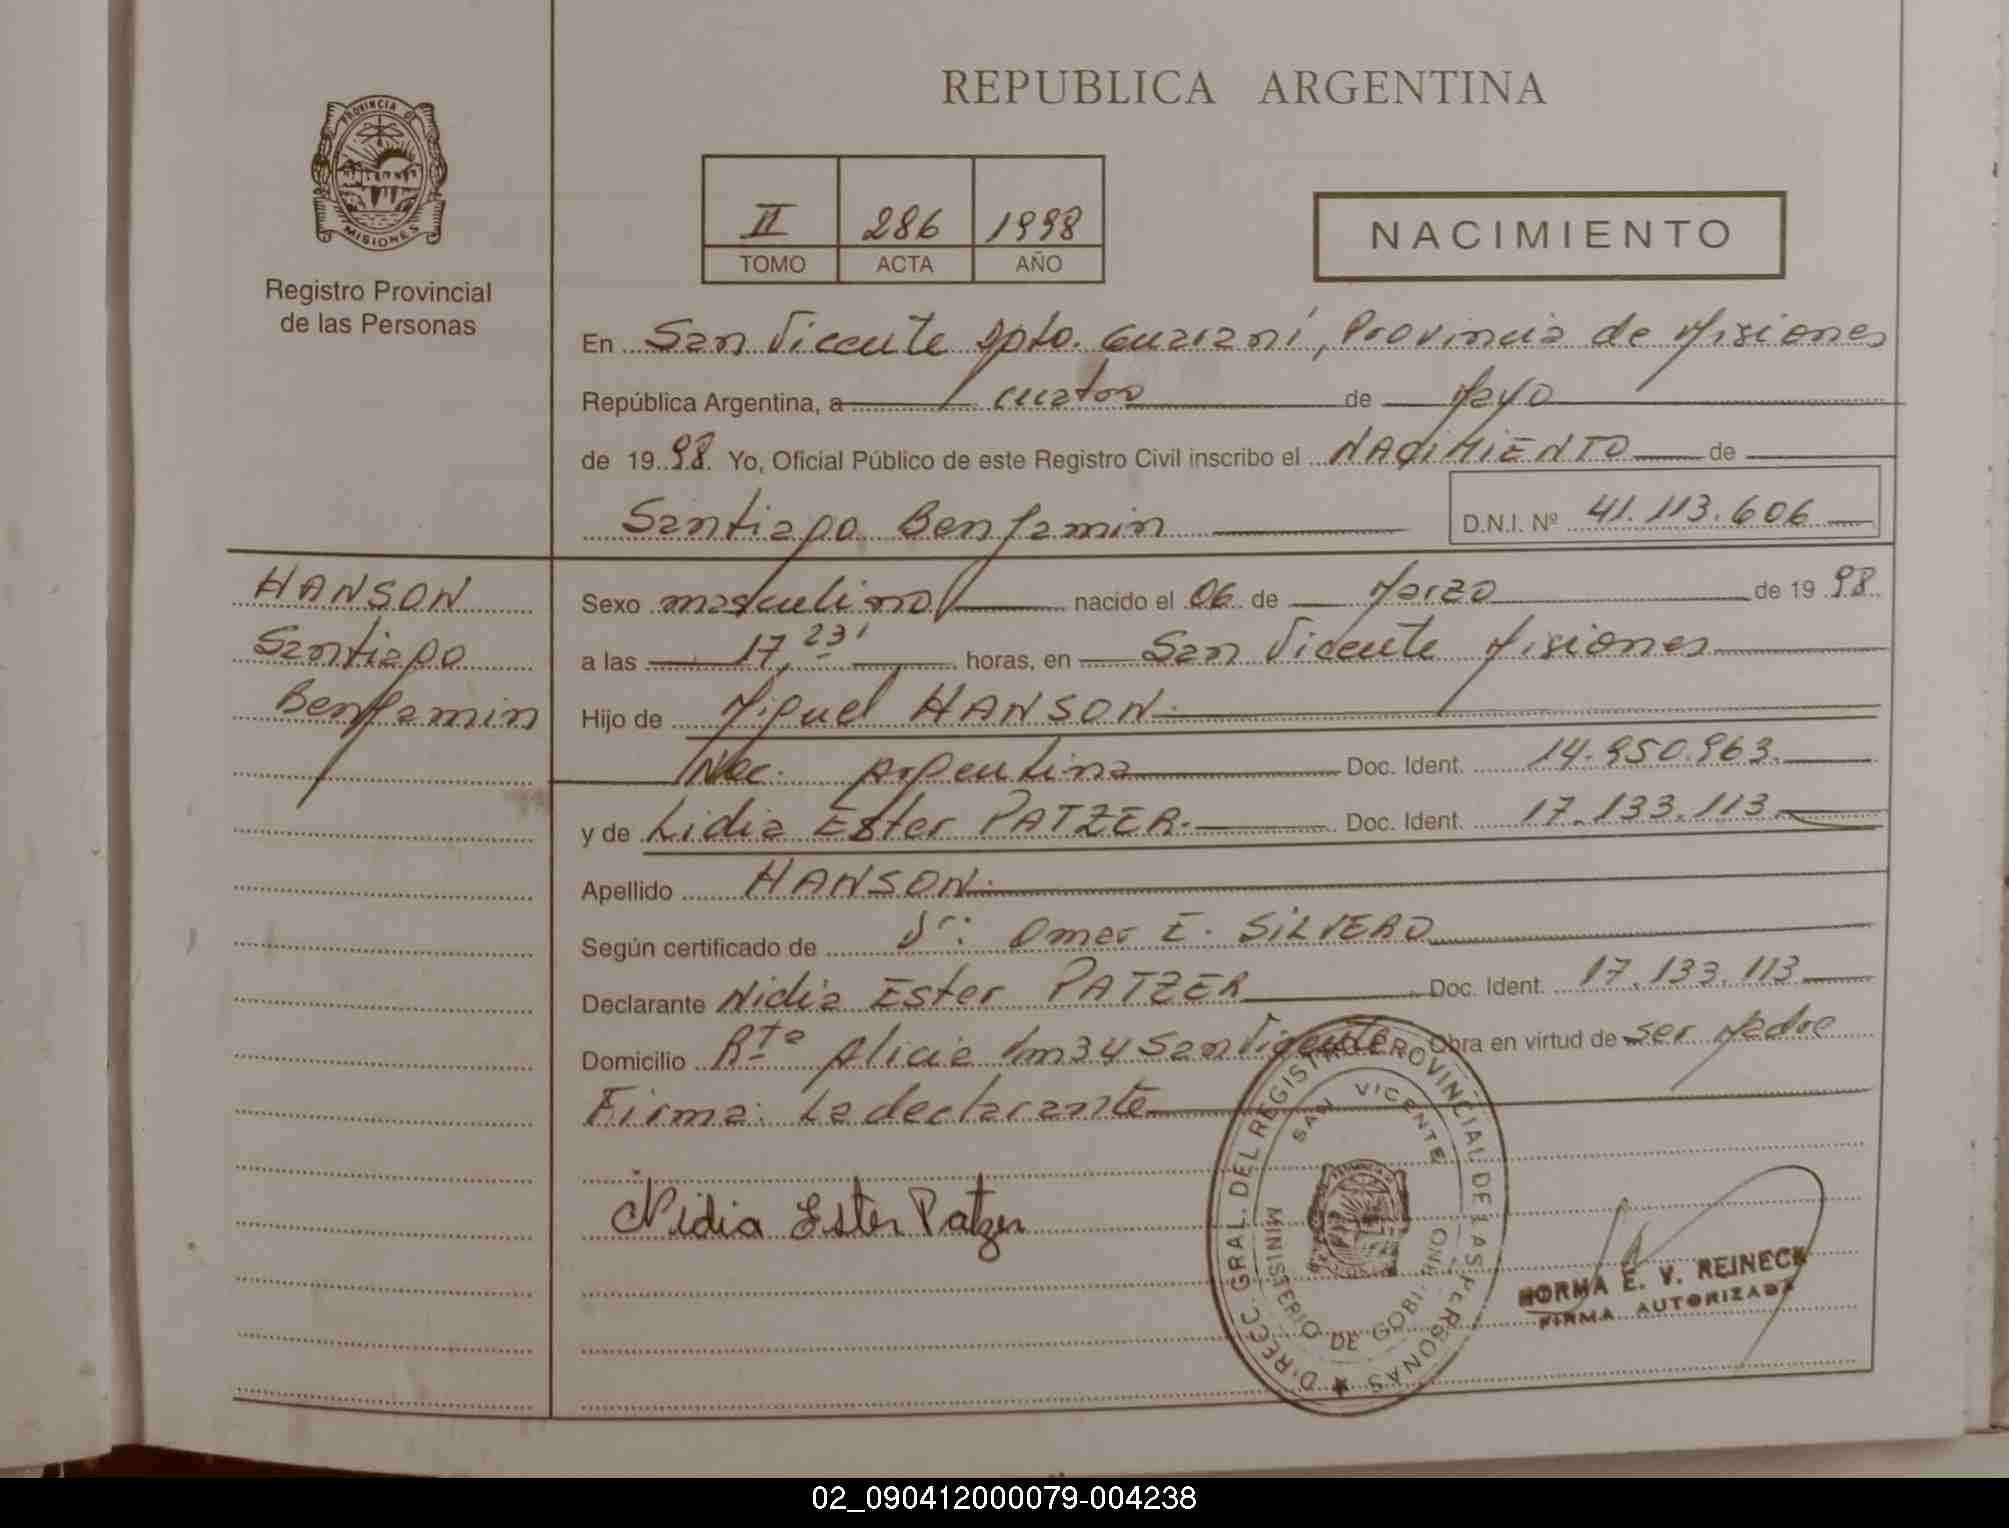 REPUBLICA ARGENTINA
PROVINCIA DE
MISIONES
Registro Provincial
de las Personas
II 286 1998
TOMO ACTA AÑO
NACIMIENTO
En San Vicente Dpto. Guaraní, Provincia de Misiones
República Argentina, a cuatro de Mayo
de 1998. Yo, Oficial Público de este Registro Civil inscribo el NACIMIENTO de
Santiago Benjamin D.N.I. Nº 41.113.606
HANSON
Santiago
Benjamin
Sexo masculino nacido el 06 de Marzo de 1998.
a las 17,23' horas, en San Vicente Misiones
Hijo de Miguel HANSON
Nac. Argentina Doc. Ident. 14.950.963.
y de Lidia Ester PATZER. Doc. Ident. 17.133.113.
Apellido HANSON.
Según certificado de Dr: Omar E. SILVERO
Declarante Nidia Ester PATZER Doc. Ident. 17.133.113
Domicilio Rta Alicia Km34 San Vicente Obra en virtud de ser Madre
Firma: La declarante
Nidia Ester Patzer
DIREC. GRAL. DEL REGISTRO PROVINCIAL DE LAS PERSONAS
SAN VICENTE
MINISTERIO DE GOBIERNO
NORMA E. V. REINECK
FIRMA AUTORIZADA
02_090412000079-004238